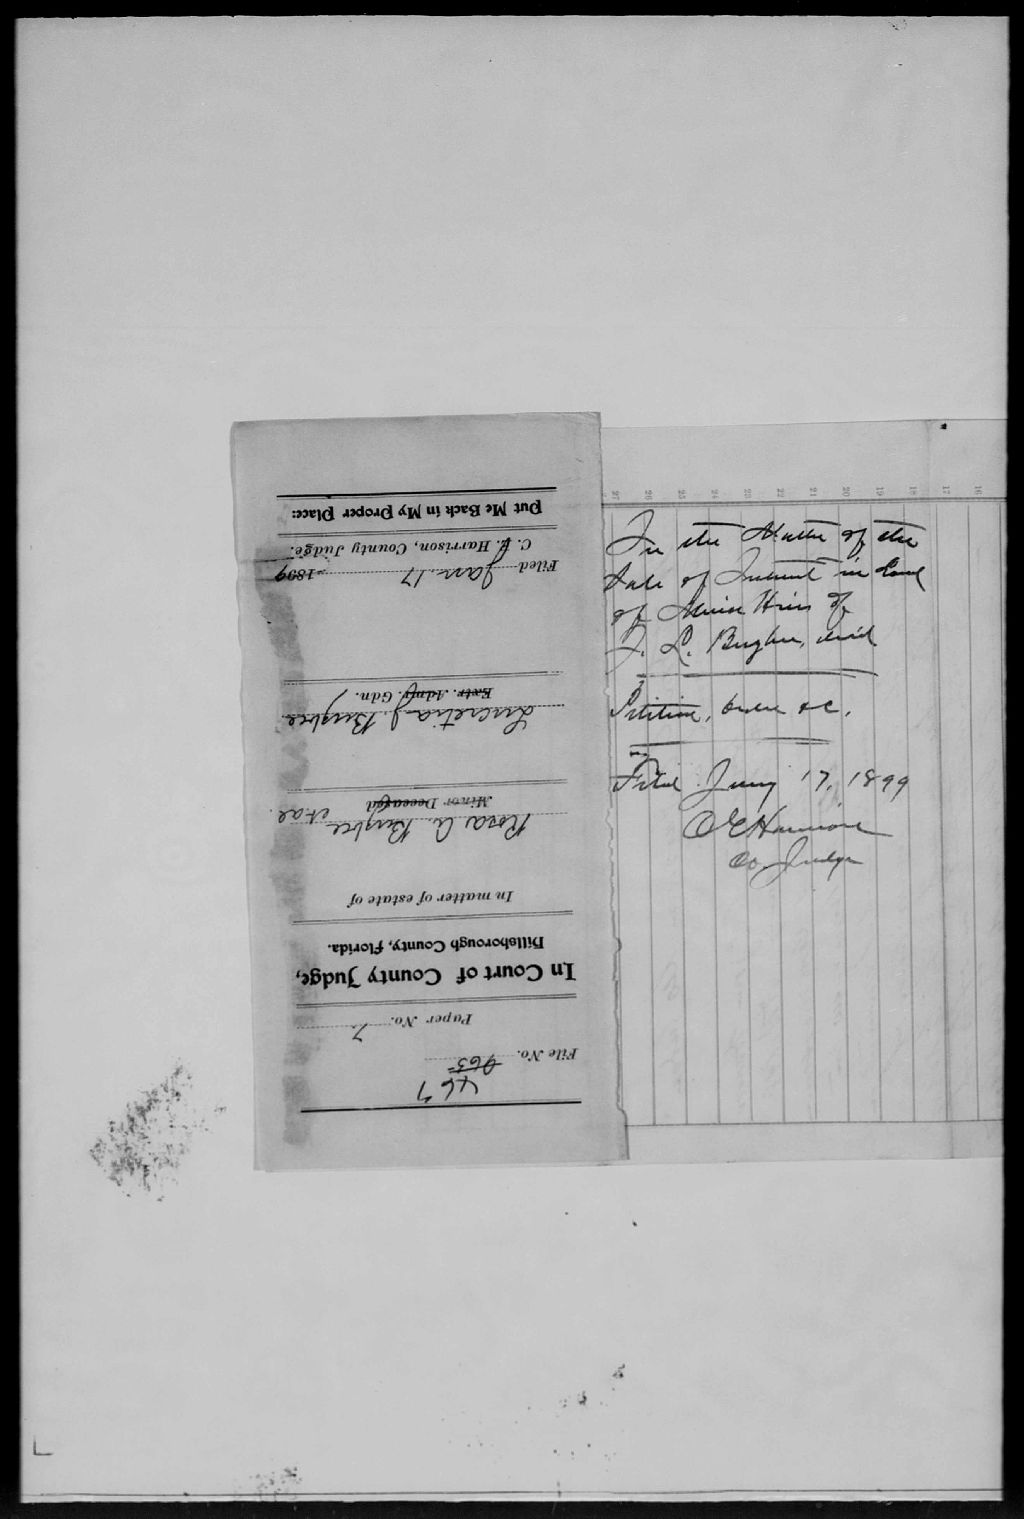 467
File No. 965
Paper No. 7
In Court of County Judge,
Hillsborough County, Florida.
In matter of estate of
Rosa A. Bugbee et al.
Minor Deceased
Lucretia J. Bugbee
Extr. Admr. Gdn.
Filed Jan. 17 1899
C. E. Harrison, County Judge.
Put Me Back in My Proper Place:
27 26 25 24 23 22 21 20 19 18 17 16
In the Matter of the
Sale of Interest in Land
of Minor Heirs of
J. L. Bugbee, decd
Petition, order &c.
Filed Jany 17, 1899
C E Harrison
Co. Judge